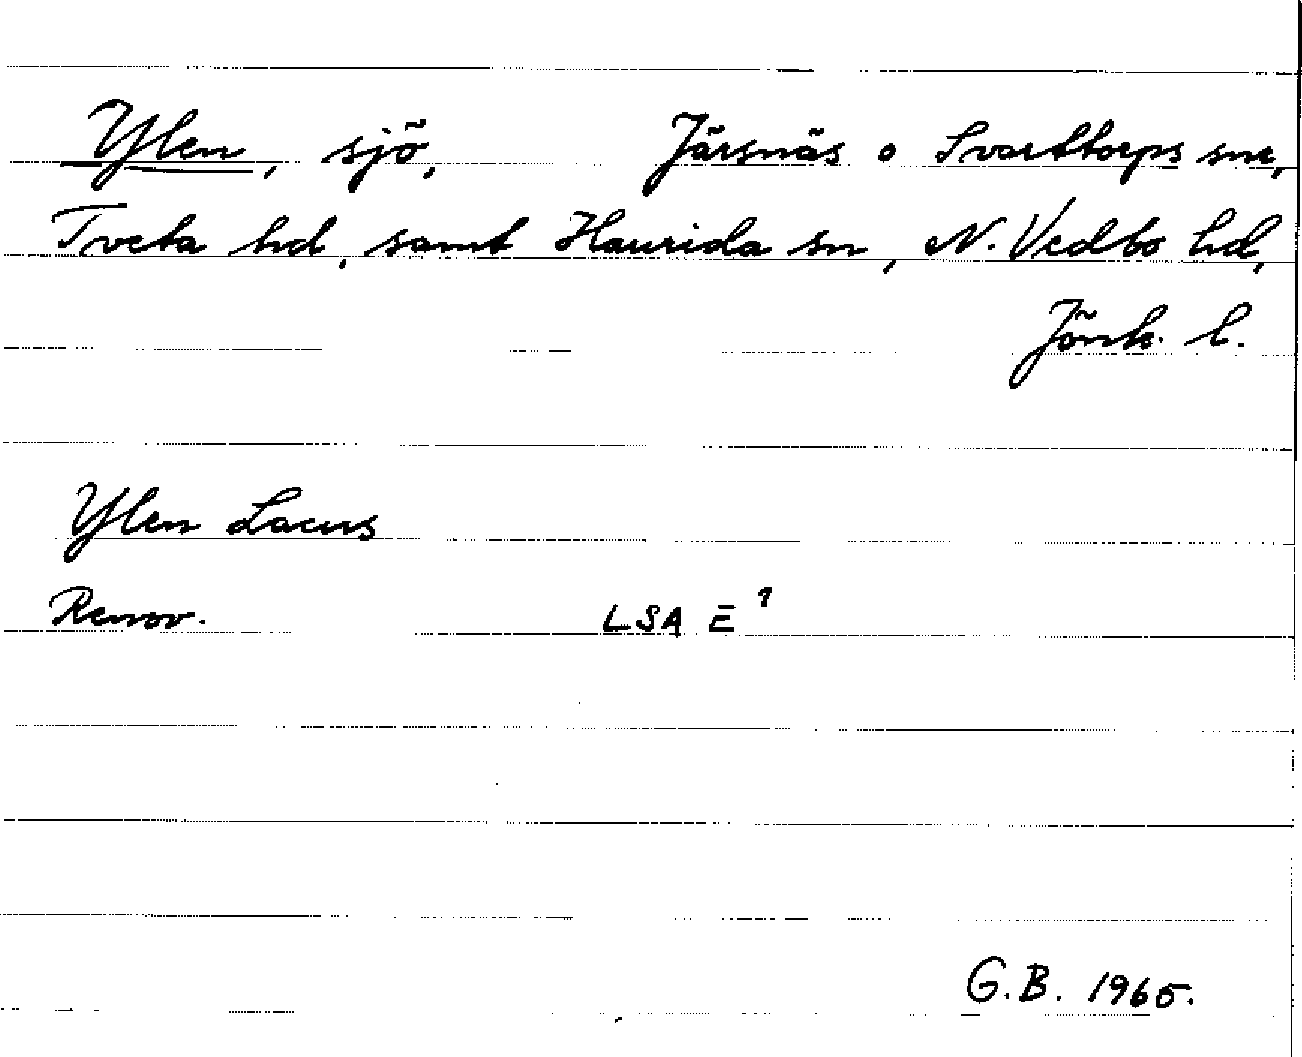 Ylen, sjö, Järsnäs o Svarttorps snr,
Tveta hd, samt Haurida sn, N. Vedbo hd,
Jönk. l.
Ylen Lacus
Renov. LSA E 1
G.B. 1965.